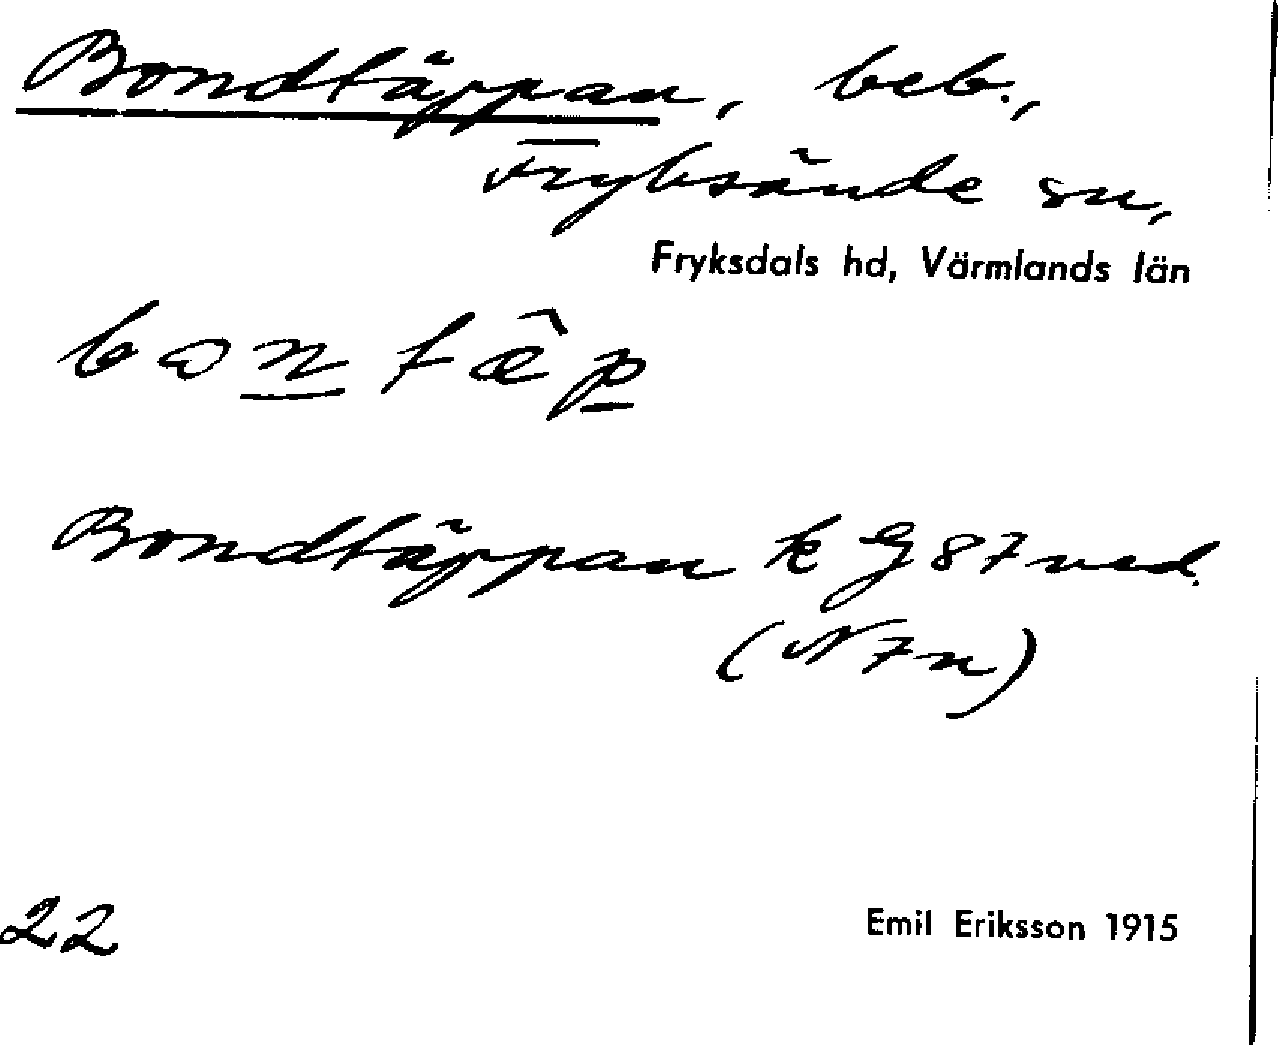 Bondtäppan, beb.,
Fryksände sn,
Fryksdals hd, Värmlands län
Bondtäppan k G 87 ned.
(N 7 n)
22
Emil Eriksson 1915